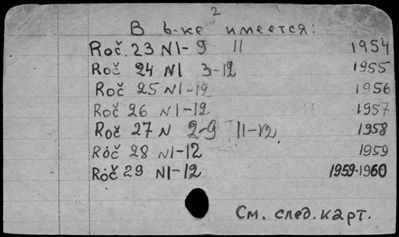 2
В б-ке имеется:
Roč. 23 N1-9 11 1954
Roč 24 N1 3-12 1955
Roč 25 N1-12 1956
Roč 26 N1-12 1957
Roč 27 N 2-9 11-12. 1958
Roč 28 N1-12 1959
Roč 29 N1-12 1959-1960
См. след. карт.